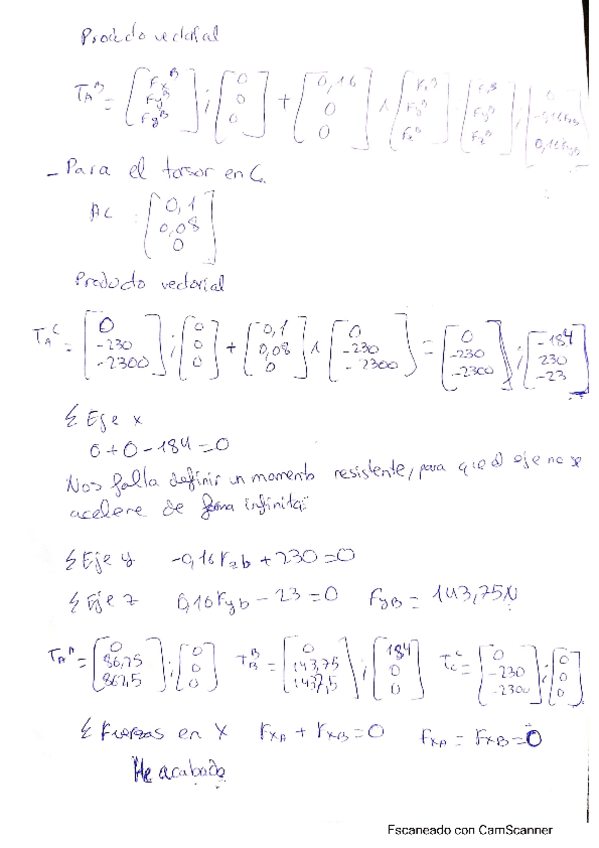 Producto vectorial
T_A^B = [F_x^B F_y^B F_z^B] ; [0 0 0] + [0,16 0 0] ∧ [F_x^B F_y^B F_z^B] [F_x^B F_y^B F_z^B] ; [0 -0,16F_zB 0,16F_yB]
- Para el torsor en C.
AC [0,1 0,08 0]
Producto vectorial
T_A^C = [0 -230 -2300] ; [0 0 0] + [0,1 0,08 0] ∧ [0 -230 -2300] = [0 -230 -2300] ; [-184 230 -23]
Σ Eje x
0+0-184=0
Nos falla definir un momento resistente, para que el eje no se
acelere de forma infinita:
Σ Eje y -0,16F_zb + 230 = 0
Σ Eje z 0,16F_yb - 23 = 0 F_yB = 143,75N
T_A^A = [0 86,25 862,5] ; [0 0 0] T_B^B = [0 143,75 1437,5] ; [184 0 0] T_C^C = [0 -230 -2300] ; [0 0 0]
Σ Fuerzas en X F_xA + F_xB = 0 F_xA = F_xB = 0
He acabado
Escaneado con CamScanner